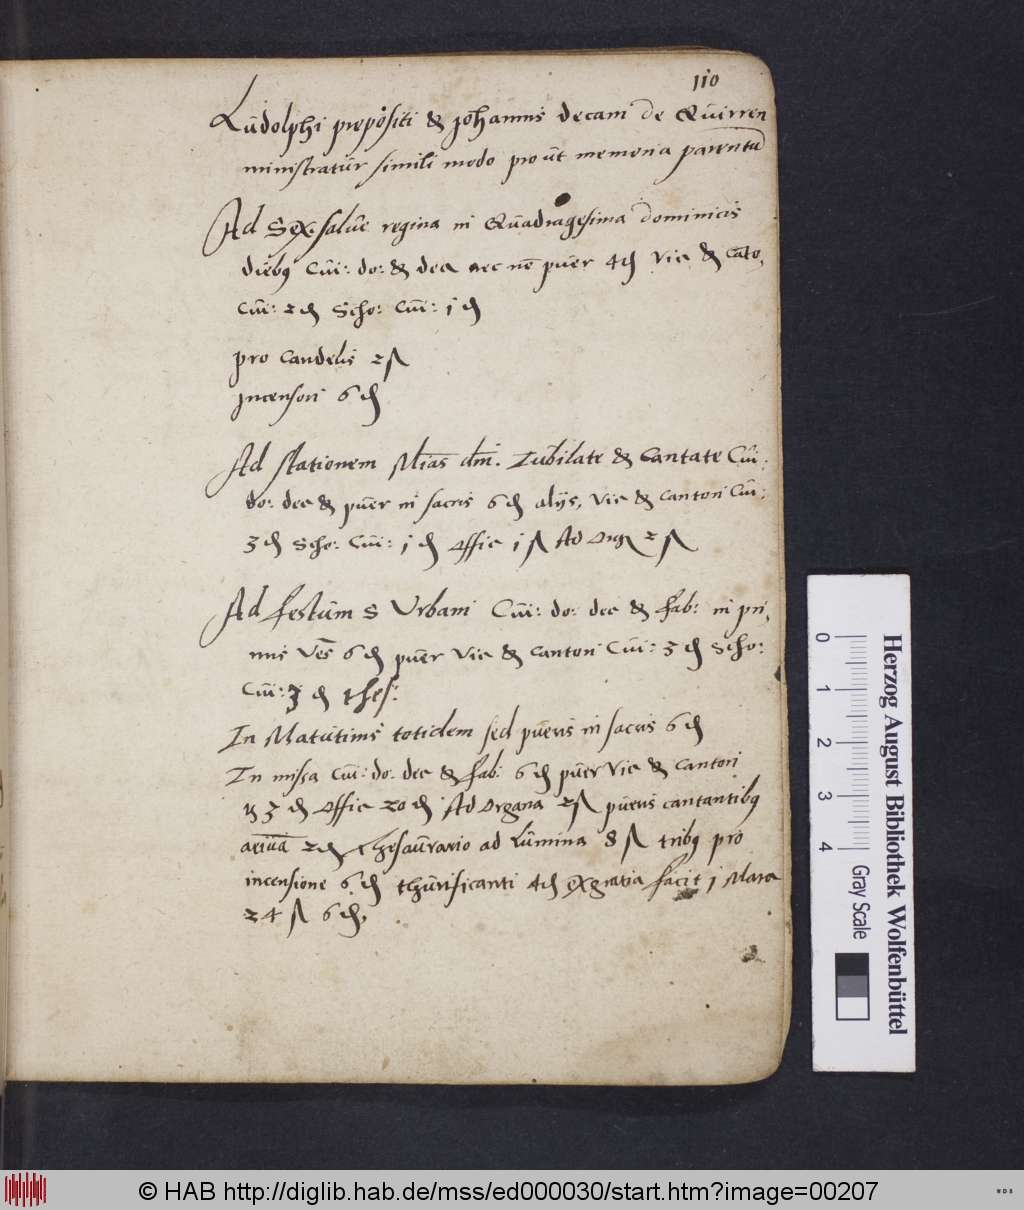 110
Ludolphi prepositi & Johannis decani de Quirren
ministratur simili modo prout memoria parentũ
Ad Sex salue regina in Quadragesima dominicis
diebꝫ Cui: do: & dec nec nõ puer 4 ₰ Vic & Cãto,
Cui: 2 ₰ Scho: Cui: j ₰
pro Candelis 2 ß
Incensori 6 ₰
Ad stationem Mĩas dñi. Iubilate & Cantate Cui:
do: dec & puer in sacris 6 ₰ alijs, Vic & Cantori Cui:
3 ₰ Scho: Cui: j ₰ Offic j ß Ad Org 2 ß
Ad festum S Vrbani Cui: do: dec & fab: in pri,
mis Ves 6 ₰ puer Vic & Cantori Cui: 3 ₰ Scho:
Cui: 3 ₰ thes:
In Matutinis totidem sed pueris in sacris 6 ₰
In missa Cui: do: dec & fab: 6 ₰ puer Vic & Cantori
3 ₰ Offic 20 ₰ Ad Organa 2 ß pueris cantantibꝫ
2 ₰ Thesaurario ad Lumina 8 ß tribꝫ pro
incensione 6 ₰ thurificanti 4 ₰ ex gratia facit j Marc
24 ß 6 ₰,
Herzog August Bibliothek Wolfenbüttel
0 1 2 3 4 Gray Scale
© HAB http://diglib.hab.de/mss/ed000030/start.htm?image=00207